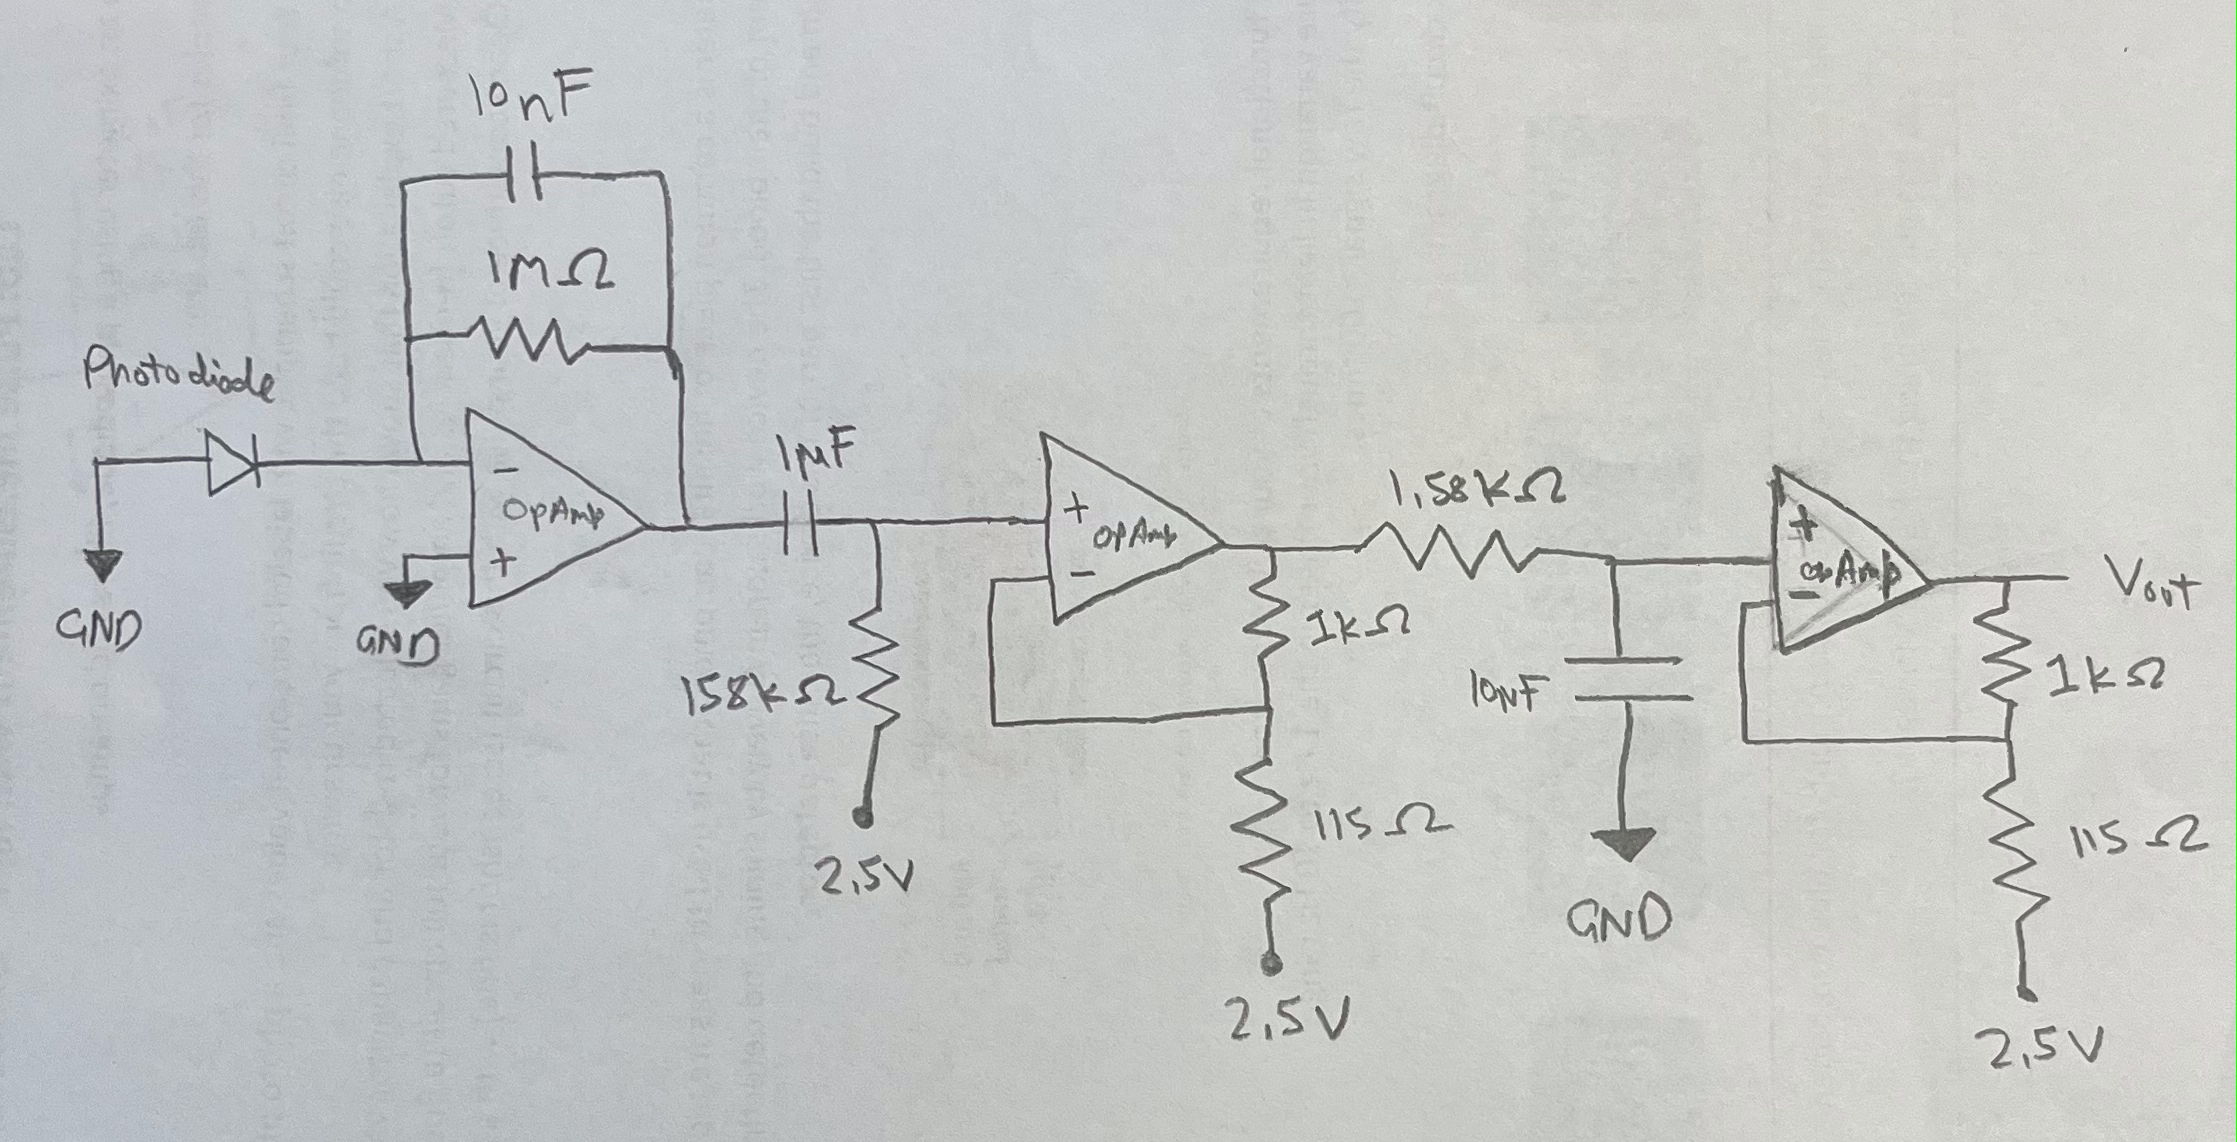 10nF
1MΩ
Photodiode
GND
-
OpAmp
+
GND
1µF
158kΩ
2.5V
+
OpAmp
-
1kΩ
115Ω
2.5V
1.58kΩ
10µF
GND
+
OpAmp
-
Vout
1kΩ
115Ω
2.5V